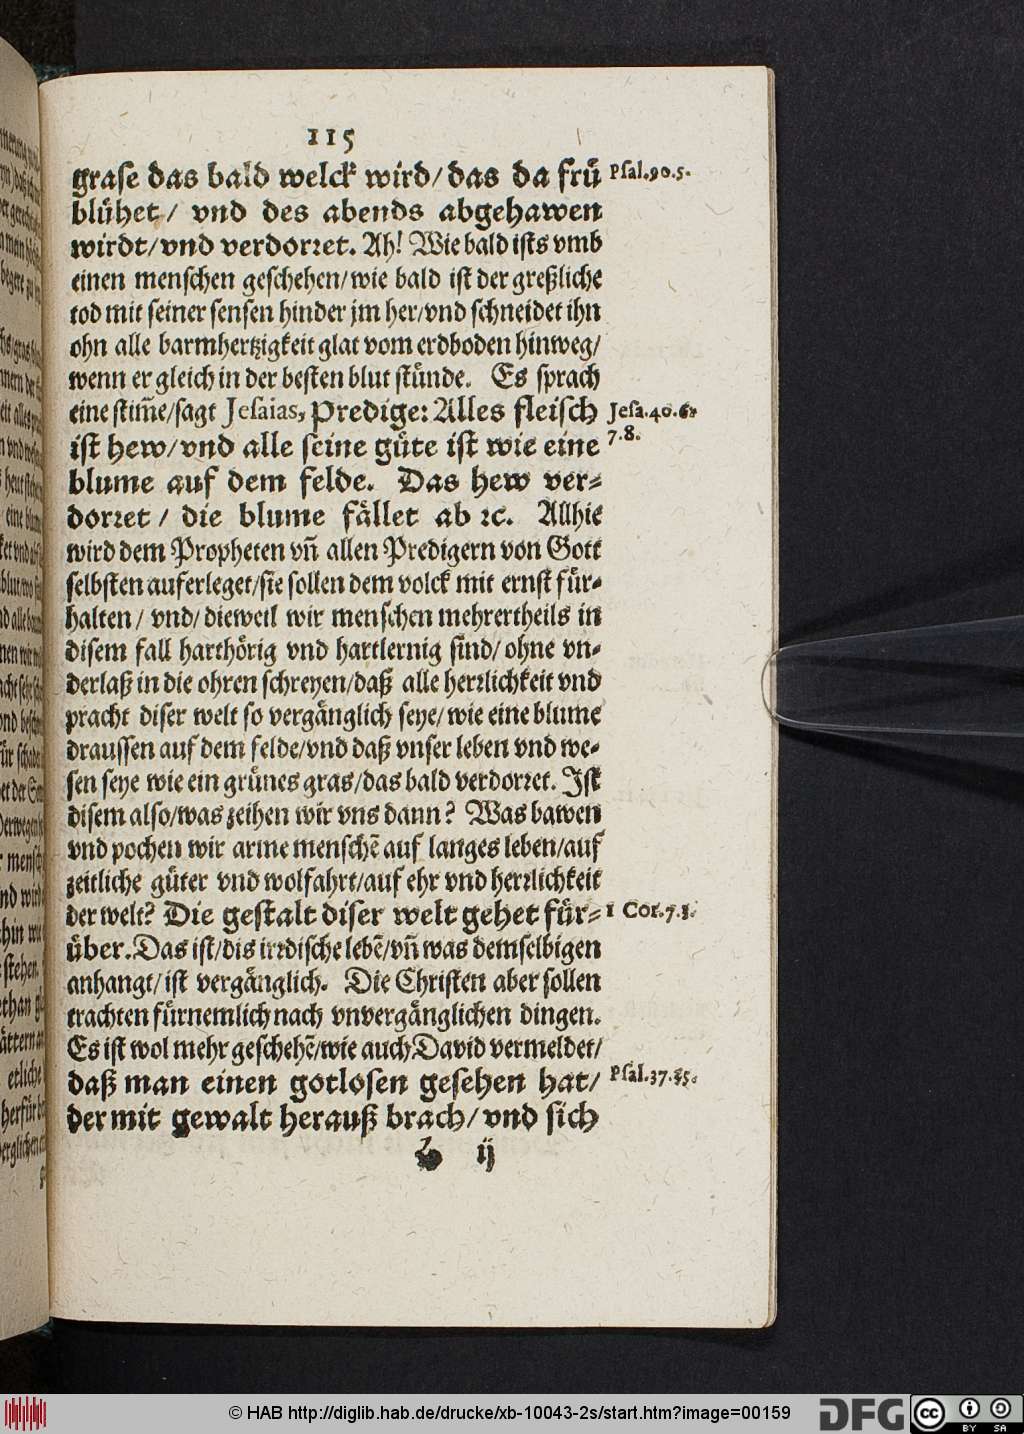 115
grase das bald welck wird/ das da frü Psal.90.5.
blühet/ vnd des abends abgehawen
wirdt/ vnd verdorꝛet. Ah! Wie bald ists vmb
einen menschen geschehen/ wie bald ist der greßliche
tod mit seiner sensen hinder jm her/ vnd schneidet ihn
ohn alle barmhertzigkeit glat vom erdboden hinweg/
wenn er gleich in der besten blut stünde. Es sprach
eine stim̃e/ sagt Jesaias, Predige: Alles fleisch Jesa.40.6.
ist hew/ vnd alle seine güte ist wie eine 7.8.
blume auf dem felde. Das hew ver⸗
dorꝛet / die blume fället ab ꝛc. Allhie
wird dem Propheten vñ allen Predigern von Gott
selbsten auferleget/ sie sollen dem volck mit ernst für⸗
halten / vnd/ dieweil wir menschen mehrertheils in
disem fall harthörig vnd hartlernig sind/ ohne vn⸗
derlaß in die ohren schreyen/ daß alle herꝛlichkeit vnd
pracht diser welt so vergänglich seye/ wie eine blume
draussen auf dem felde/ vnd daß vnser leben vnd we⸗
sen seye wie ein grünes gras/ das bald verdorꝛet. Ist
disem also/ was zeihen wir vns dann? Was bawen
vnd pochen wir arme menschẽ auf langes leben/ auf
zeitliche güter vnd wolfahrt/ auf ehr vnd herꝛlichkeit
der welt? Die gestalt diser welt gehet für⸗ 1 Cor.7.
über. Das ist/ dis irꝛdische lebẽ/ vñ was demselbigen
anhangt/ ist vergänglich. Die Christen aber sollen
trachten fürnemlich nach vnvergänglichen dingen.
Es ist wol mehr geschehẽ/ wie auch David vermeldet/
daß man einen gotlosen gesehen hat/ Psal.37.35.
der mit gewalt herauß brach/ vnd sich
ij
© HAB http://diglib.hab.de/drucke/xb-10043-2s/start.htm?image=00159 DFG cc BY SA